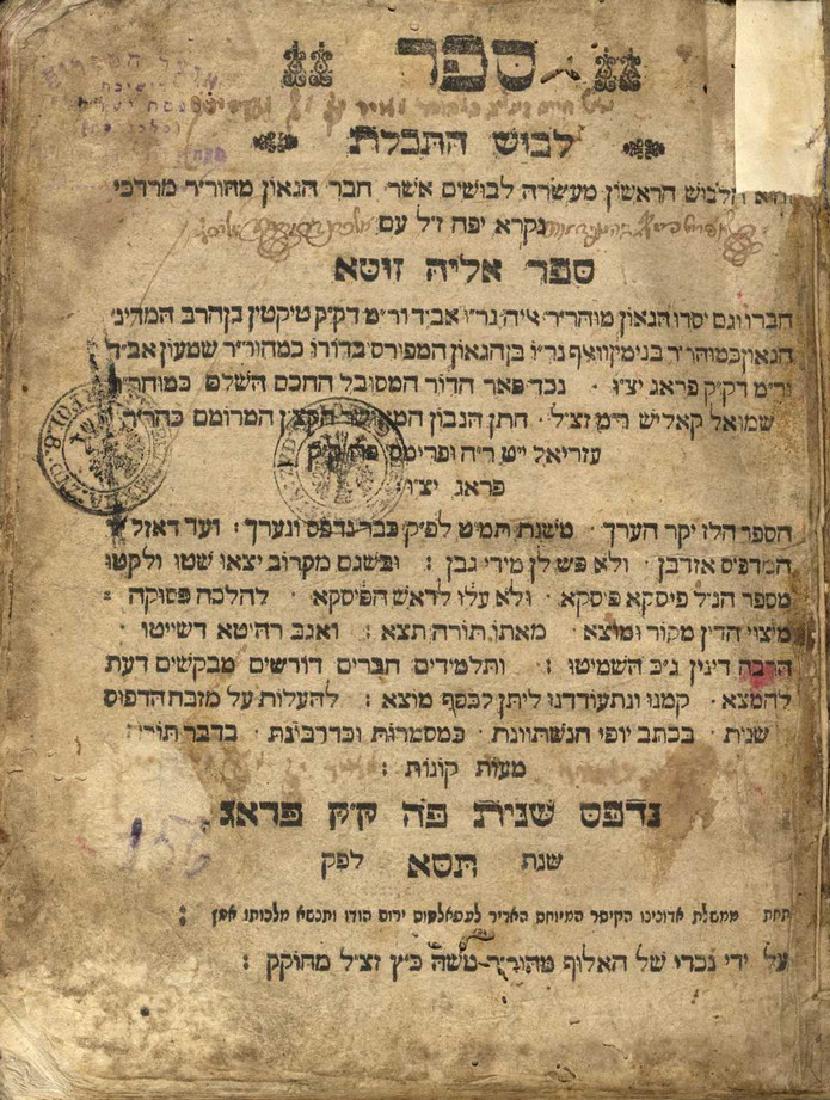 ספר
לבוש התכלת
הוא הלבוש הראשון מעשרה לבושים אשר חבר הגאון מהור״ר מרדכי
נקרא יפה ז״ל עם
ספר אליה זוטא
חברו וגם יסדו הגאון מוהר״ר אי׳ה נר״ו אב״ד ור״מ דק״ק טיקטין בן הרב המדיני
הגאון כמוהר״ר בנימין וואף נר״ו בן הגאון המפורס׳ בדורו כמהור״ר שמעון אב״ד
ור״מ דק״ק פראג יצ״ו · נכד פאר הדור המסובל החכם השלם כמוהר״ר
שמואל קאליש ר״מ זצ״ל · חתן הנבון הקצין המרומם כהר״ר
עזריאל י״ט ר״ה ופרימס פה ק״ק
פראג יצ״ו׃
הספר הלז יקר הערך · משנת תמ״ט לפ״ק כבר נדפס ונערך ׃ ועד דאזל
המדפיס אזדבן · ולא פש לן מידי גבן ׃ ובשגם מקרוב יצאו שטו ולקטו
מספר הנ״ל פיסקא פיסקא · ולא עלו לראש הפיסקא · להלכה פסוקה ׃
מוצוי הדין מקור ומוצא · מאתו תורה תצא ׃ ואגב רהיטא דשייטו ·
הרבה דינין ג״כ השמיטו ׃ ותלמידים חברים דורשים מבקשים דעת
להמצא · קמנו ונתעודדנו ליתן לכסף מוצא ׃ להעלות על מזבח הדפוס
שנית · בכתב יופי הנשתוונת · כמסמרות וכדרבונת · בדבר תורה
מעות קונות ׃
נדפס שנית פה ק״ק פראג
שנת תסא לפק
תחת ממשלת אדונינו הקיסר המיוחס האדיר לעפאלטוס ירום הודו ותנשא מלכותו אמן ׃
על ידי נכדי של האלוף מהור״ר משה כ״ץ זצ״ל מחוקק ׃